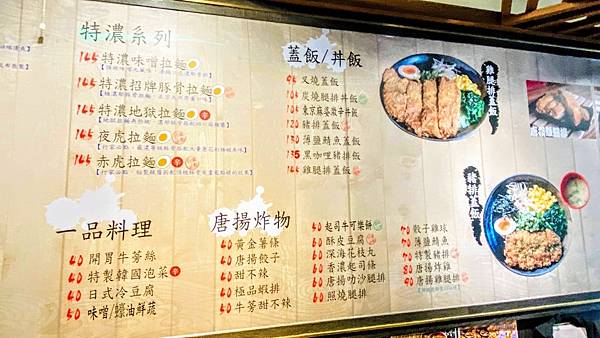 特濃系列
145 特濃味噌拉麵
145 特濃招牌豚骨拉麵
145 特濃地獄拉麵 辛
145 夜虎拉麵
145 赤虎拉麵 辛
蓋飯/丼飯
叉燒蓋飯
炭燒腿排丼飯
120 豬排蓋飯
130 薄鹽鯖魚蓋飯
135 黑咖哩豬排飯
雞腿排蓋飯
雞腿排蓋飯
豬排蓋飯
一品料理
40 開胃牛蒡絲
40 特製韓國泡菜 辛
40 日式冷豆腐
50 味噌/蠔油鮮蔬
唐揚炸物
40 黃金薯條
40 唐揚餃子
40 甜不辣
40 極品蝦排
40 牛蒡甜不辣
50 起司牛可樂餅
60 酥皮豆腐
60 深海花枝丸
60 香濃起司條
60 唐揚叻沙腿排
60 照燒腿排
70 骰子雞球
70 薄鹽鯖魚
70 特製豬排
80 唐揚炸雞
90 唐揚雞腿排